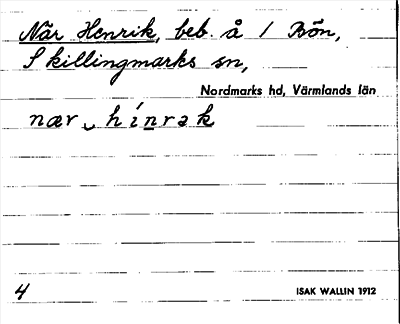 När Henrik, beb. å 1 Bön,
Skillingmarks sn,
Nordmarks hd, Värmlands län
nær ‿ hínrək
4 ISAK WALLIN 1912